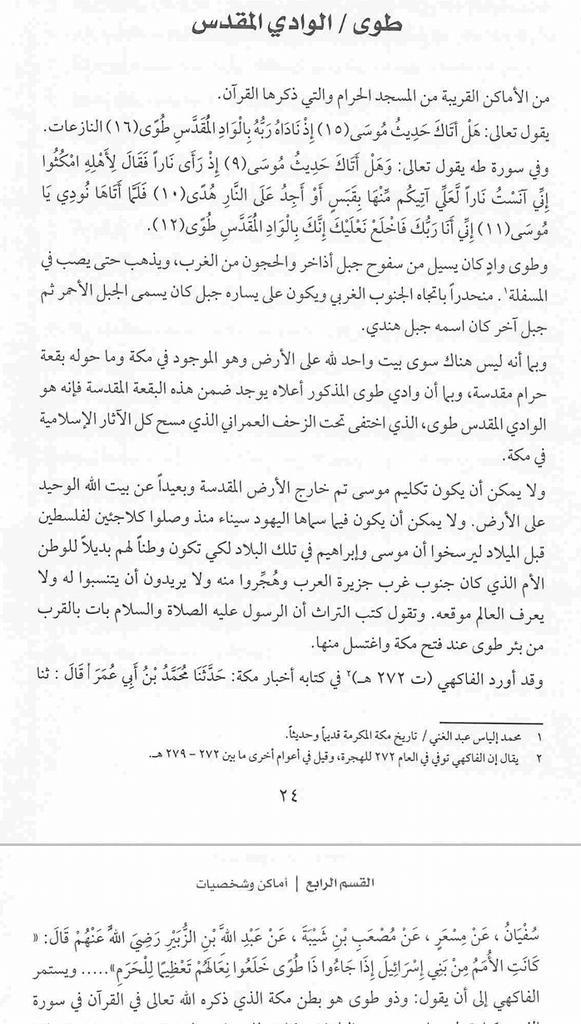 طوى / الوادي المقدس
من الأماكن القريبة من المسجد الحرام والتي ذكرها القرآن.
يقول تعالى: هَلْ أتَاكَ حَدِيثُ مُوسَى(١٥) إِذْ نَادَاهُ رَبُّهُ بِالْوَادِ المُقَدَّسِ طُوًى(١٦) النازعات.
وفي سورة طه يقول تعالى: وَهَلْ أَتَاكَ حَدِيثُ مُوسَى(٩) إِذْ رَأَى نَاراً فَقَالَ لِأَهْلِهِ امْكُثُوا
إِنِّي آنَسْتُ نَاراً لَّعَلِّي آتِيكُم مِّنْهَا بِقَبَسٍ أَوْ أَجِدُ عَلَى النَّارِ هُدًى(١٠) فَلَمَّا أَتَاهَا نُودِي يَا
مُوسَى(١١) إِنِّي أَنَا رَبُّكَ فَاخْلَعْ نَعْلَيْكَ إِنَّكَ بِالْوَادِ المُقَدَّسِ طُوًى(١٢).
وطوى وادٍ كان يسيل من سفوح جبل أذاخر والحجون من الغرب، ويذهب حتى يصب في
المسفلة١. منحدراً باتجاه الجنوب الغربي ويكون على يساره جبل كان يسمى الجبل الأحمر ثم
جبل آخر كان اسمه جبل هندي.
وبما أنه ليس هناك سوى بيت واحد لله على الأرض وهو الموجود في مكة وما حوله بقعة
حرام مقدسة، وبما أن وادي طوى المذكور أعلاه يوجد ضمن هذه البقعة المقدسة فإنه هو
الوادي المقدس طوى، الذي اختفى تحت الزحف العمراني الذي مسح كل الآثار الإسلامية
في مكة.
ولا يمكن أن يكون تكليم موسى تم خارج الأرض المقدسة وبعيداً عن بيت الله الوحيد
على الأرض. ولا يمكن أن يكون فيما سماها اليهود سيناء منذ وصلوا كلاجئين لفلسطين
قبل الميلاد ليرسخوا أن موسى وإبراهيم في تلك البلاد لكي تكون وطناً لهم بديلاً للوطن
الأم الذي كان جنوب غرب جزيرة العرب وهُجِّروا منه ولا يريدون أن ينتسبوا له ولا
يعرف العالم موقعه. وتقول كتب التراث أن الرسول عليه الصلاة والسلام بات بالقرب
من بئر طوى عند فتح مكة واغتسل منها.
وقد أورد الفاكهي (ت ٢٧٢ هـ)٢ في كتابه أخبار مكة: حَدَّثَنَا مُحَمَّدُ بْنُ أَبِي عُمَرَ أ قَالَ : ثنا
١ محمد إلياس عبد الغني / تاريخ مكة المكرمة قديماً وحديثاً.
٢ يقال إن الفاكهي توفي في العام ٢٧٢ للهجرة، وقيل في أعوام أخرى ما بين ٢٧٢ – ٢٧٩ هـ.
٢٤
القسم الرابع | أماكن وشخصيات
سُفْيَانُ ، عَنْ مِسْعَرٍ ، عَنْ مُصْعَبِ بْنِ شَيْبَةَ ، عَنْ عَبْدِ اللهِ بْنِ الزُّبَيْرِ رَضِيَ اللهُ عَنْهُمْ قَالَ: «
كَانَتِ الأُمَمُ مِنْ بَنِي إِسْرَائِيلَ إِذَا جَاءُوا ذَا طُوًى خَلَعُوا نِعَالَهُمْ تَعْظِيمًا لِلْحَرَمِ»..... ويستمر
الفاكهي إلى أن يقول: وذو طوى هو بطن مكة الذي ذكره الله تعالى في القرآن في سورة